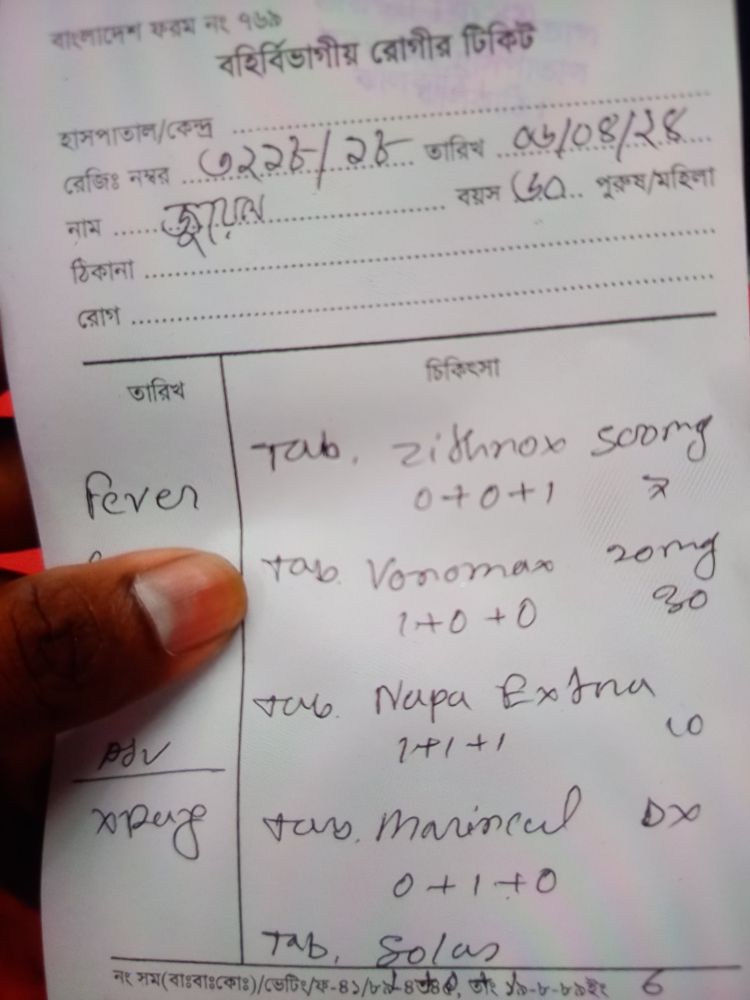 বাংলাদেশ ফরম নং ৭৬৯
বহির্বিভাগীয় রোগীর টিকিট
হাসপাতাল/কেন্দ্র
রেজিঃ নম্বর ৩২২৮/২৮ তারিখ ০৬/০৪/২৪
নাম জুয়েল বয়স ৬০ পুরুষ/মহিলা
ঠিকানা
রোগ
তারিখ চিকিৎসা
Tab. Zithrox 500mg
Fever 0+0+1
Tab. Vonomax 20mg
1+0+0 30
Tab. Napa Extra
1+1+1 10
Adv
Tab. Marincal DX
0+1+0
Tab. Solas
নং সম(বাঃবাঃকোঃ)/ভেটিং/ফ-৪১/৮৯ 6